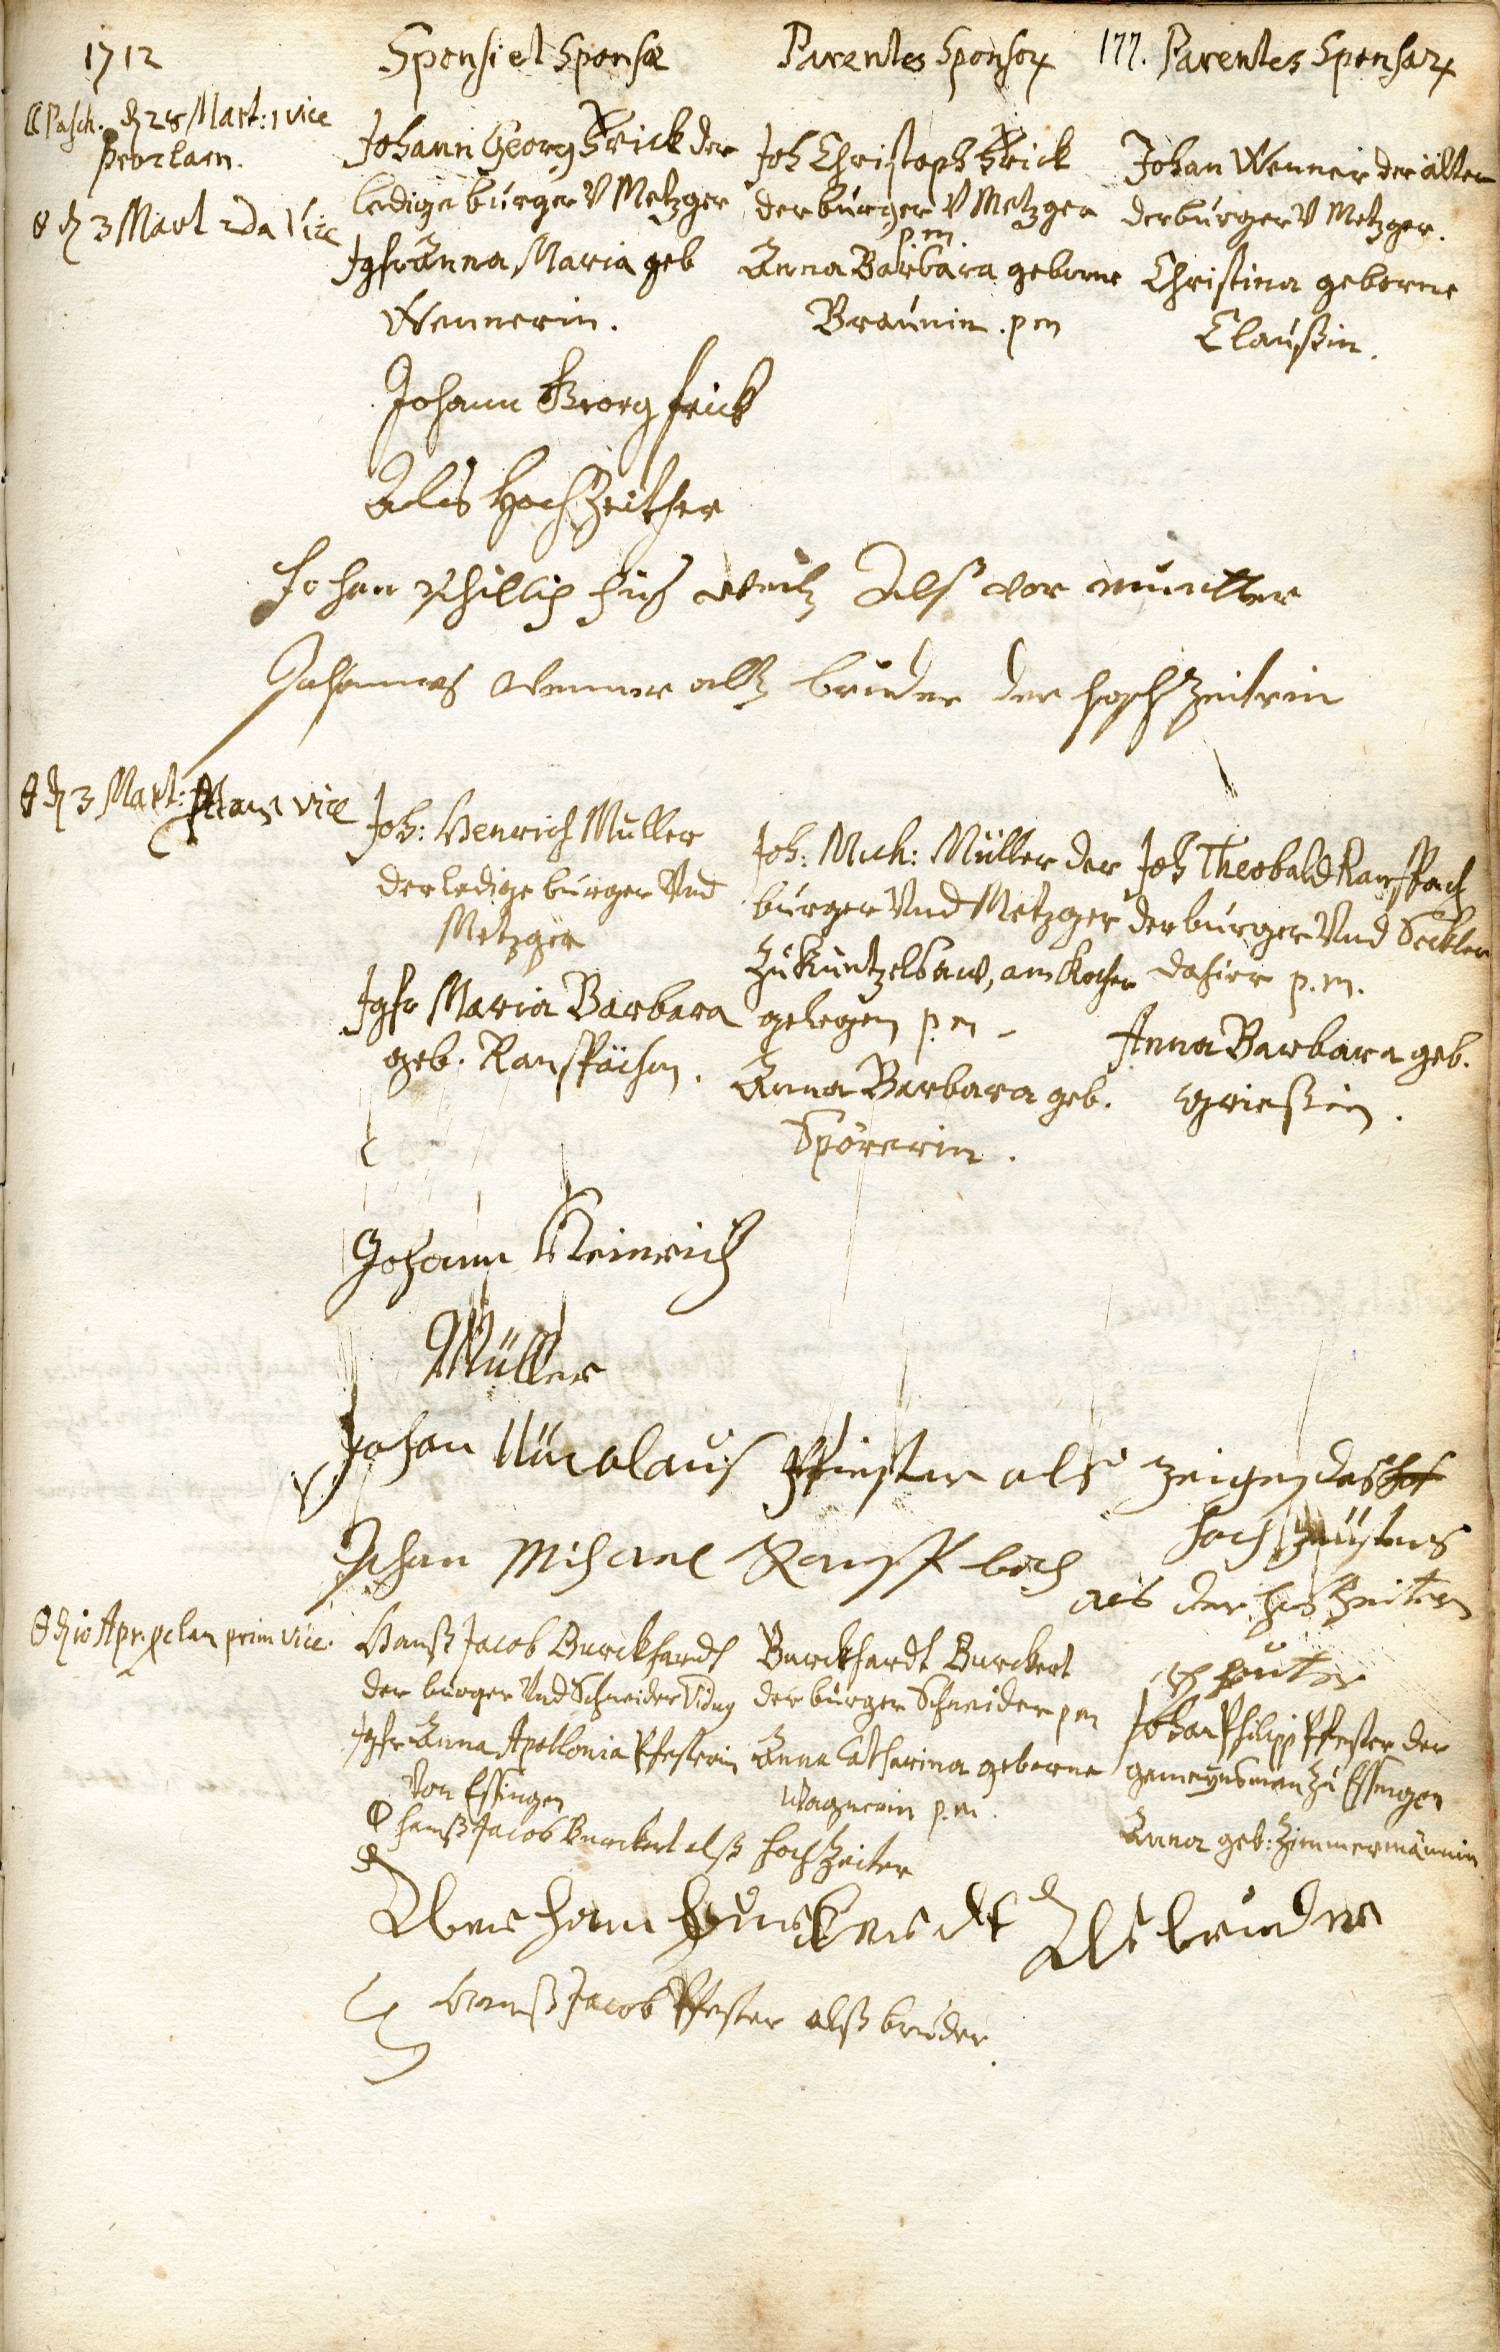 1712
Sponsi et Sponsæ
Parentes Sponsor
177. Parentes Sponsar
Pasch. d 28 Mart: 1 vice
proclam.
d 3 Mart 2da Vice
Johann Georg Frick der
ledige burger V Metzger
Jgfr Anna Maria geb
Wennerin.
Joh Christoph Frick
der burger V Metzger
p.m.
Anna Barbara geborne
Braunin. pm
Johan Wenner der älter
der burger V Metzger.
Christina geborne
Claußin.
Johann Georg frick
Als Hochzeither
Johan Phillip Als vor münder
Johannes Wenner alß bruder der hochzeiterin
d 3 Mart: vice
Joh: Henrich Müller
der ledige burger Vnd
Metzger
Jgfr Maria Barbara
geb. Ranspächin.
Joh: Mich: Müller der
burger Vnd Metzger
zu Kuntzelsaw, am Kocher
gelegen p.m
Anna Barbara geb.
Spörerin.
Joh Theobald Ranspach
der burger Vnd Seckler
dahier p.m.
Anna Barbara geb.
Grießin.
Johann Heinrich
Müller
Johan Nicolaus Pfiester als zeigen des
hochzeiters
Johan Michael Ranspach
als der hochzeiterin
bruter
d 10 Apr. pclam prim vice.
Hanß Jacob Burckhardt
der burger Vnd Schneider Vidug
Jgfr Anna Apollonia Pfesterin
Von Essingen
Burckhardt Burckert
der burger Schneider pm
Anna Catharina geborne
Wagnerin p.m.
Johan Philipp Pfester der
gemeynsman zu Essingen
Anna geb: Zimmermännin
hanß Jacob Burckert alß hochzeiter
Abraham Burckhardt Als bruder
Hanß Jacob Pfester alß bruder.